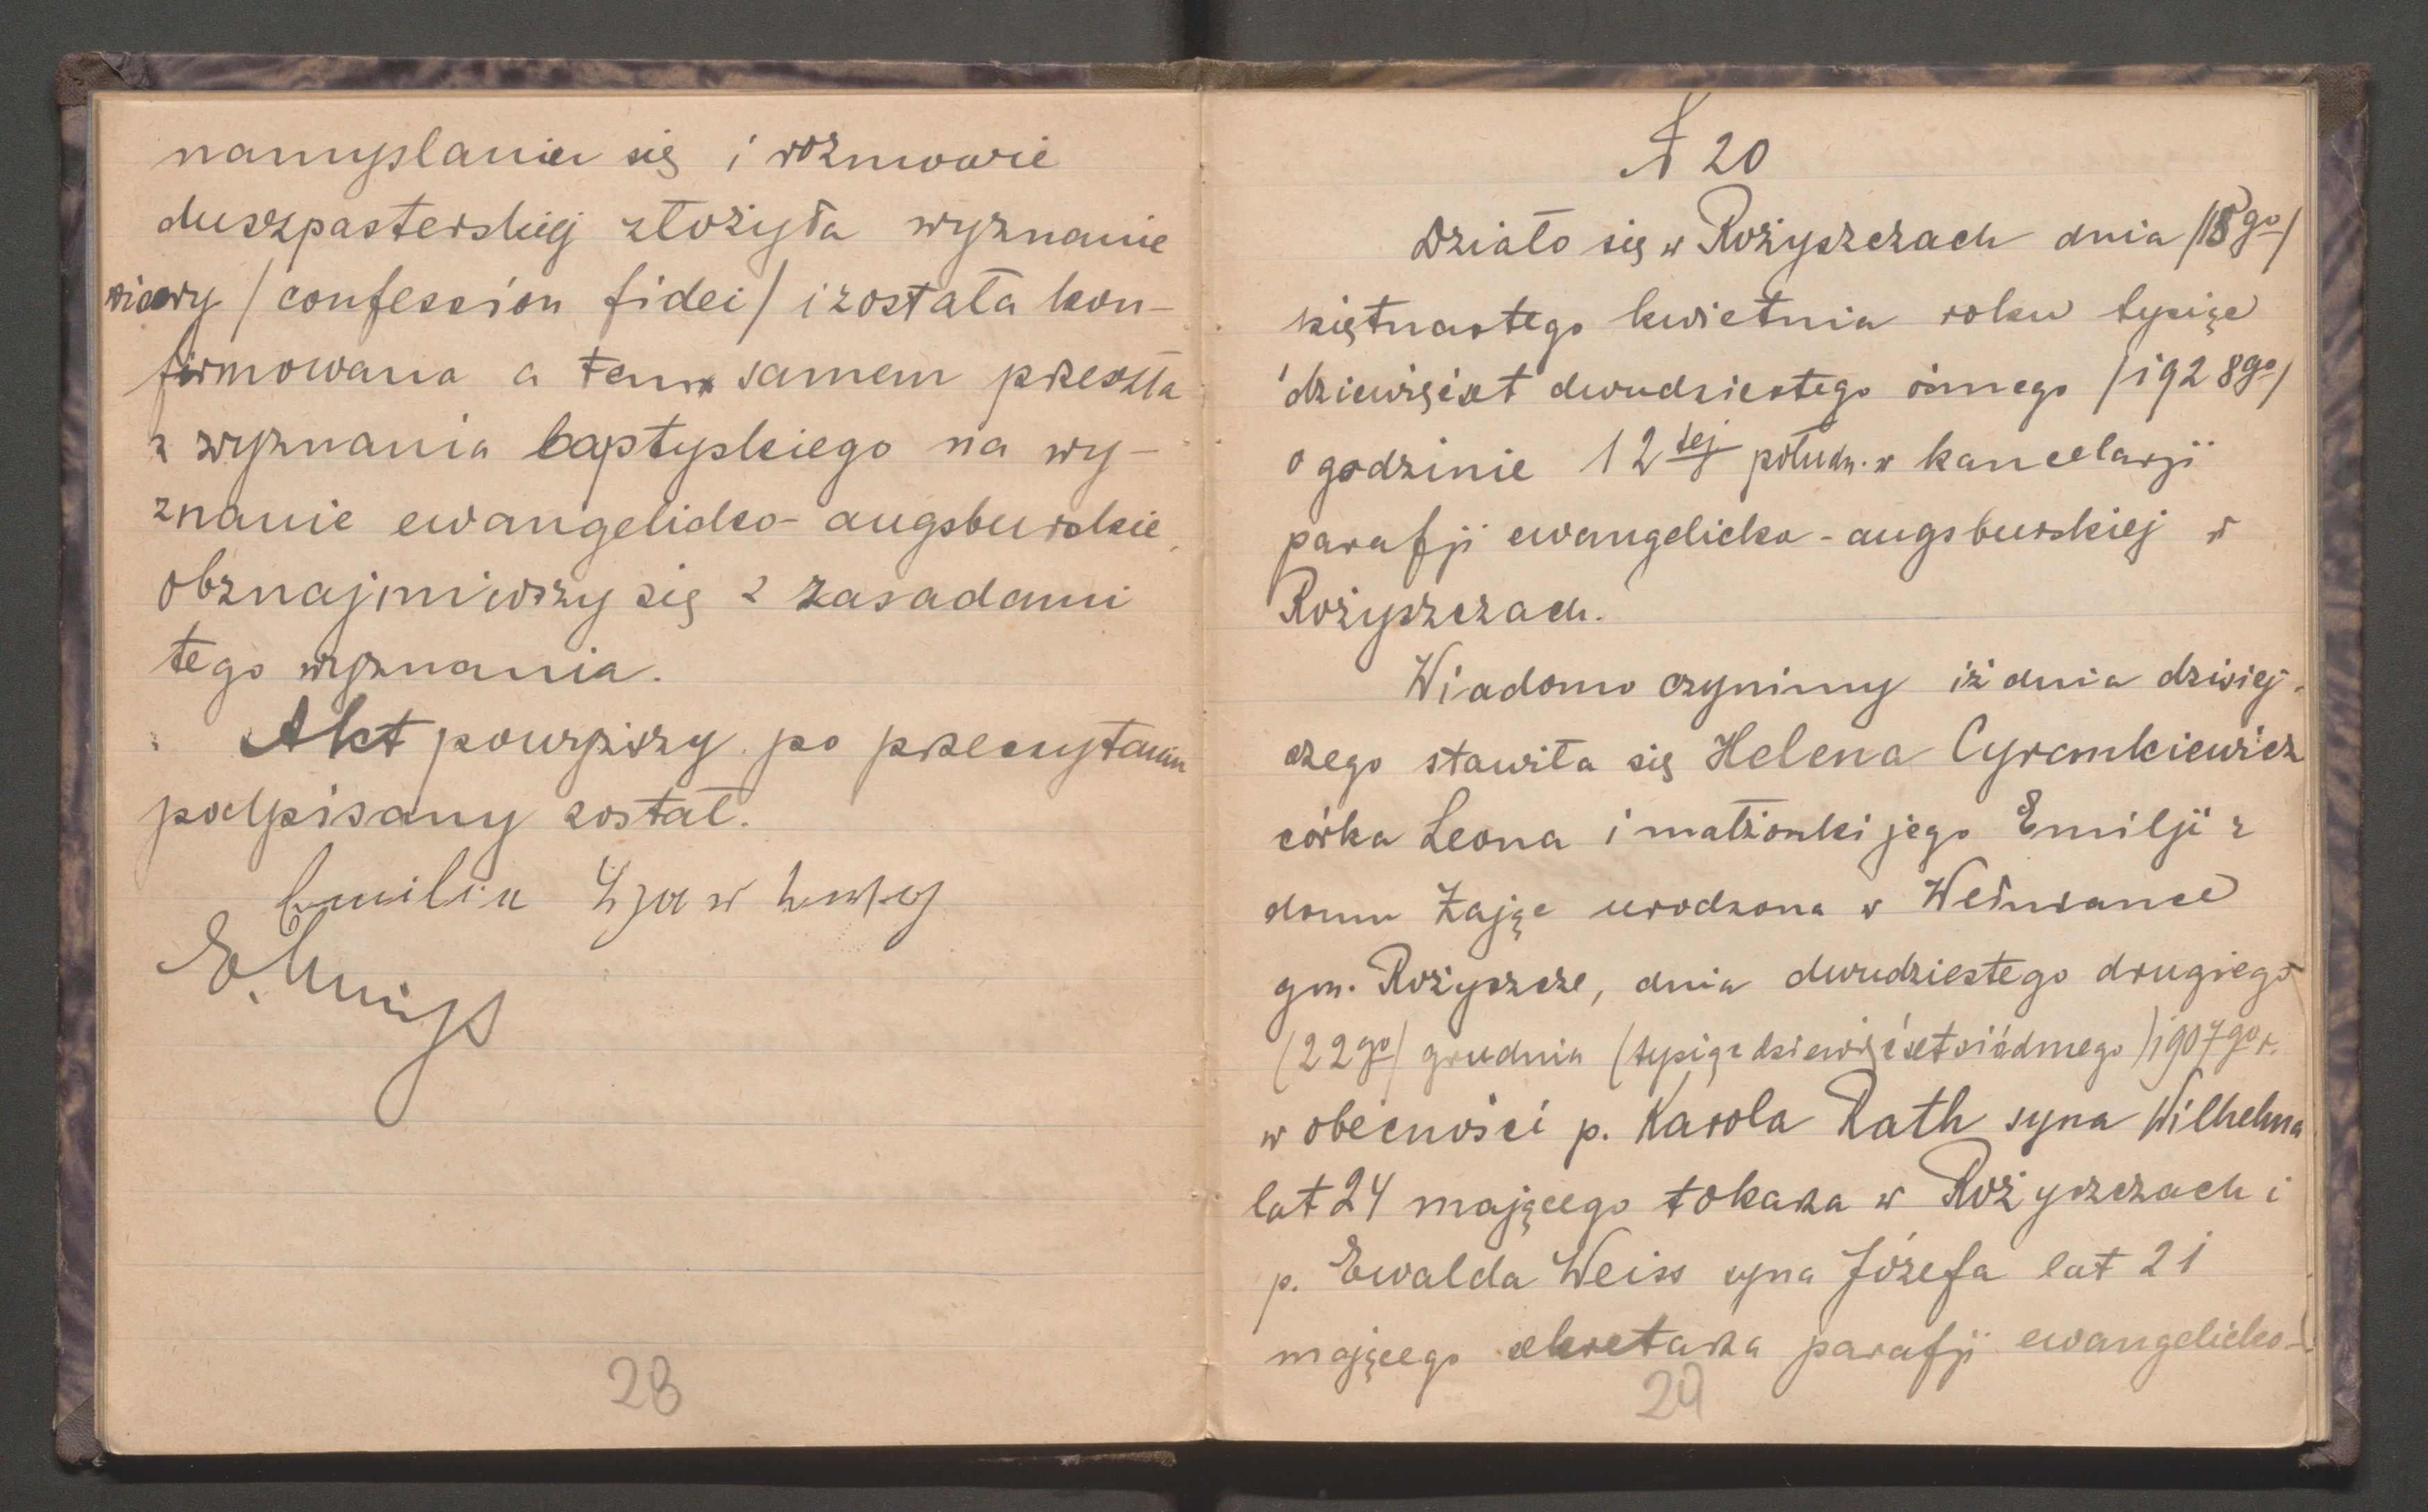 namyslaniu się i rozmowie
duszpasterskiej złożyła wyznanie
wiary / confession fidei / i została kon-
firmowana a tem samem przeszła
z wyznania baptyskiego na wy-
znanie ewangelicko-augsburskie,
obznajmiwszy się z zasadami
tego wyznania.
Akt powyższy po przeczytaniu
podpisany został.
Emilia
28
№ 20
Działo się w Rożyszczach dnia /15go/
piętnastego kwietnia roku tysiąc
dziewięćset dwudziestego ósmego /1928go/
o godzinie 12tej połudn. w kancelarji
parafji ewangelicko-augsburskiej w
Rożyszczach.
Wiadomo czynimy iż dnia dzisiej-
szego stawiła się Helena Cyrankiewicz
córka Leona i małżonki jego Emilji z
domu Zając urodzona w
gm. Rożyszcze, dnia dwudziestego drugiego
(22go) grudnia (tysiąc dziewięćset siódmego) 1907go r.
w obecności p. Karola Rath syna Wilhelma
lat 24 mającego tokarza w Rożyszczach i
p. Ewalda Weiss syna Józefa lat 21
mającego sekretarza parafji ewangelicko-
29